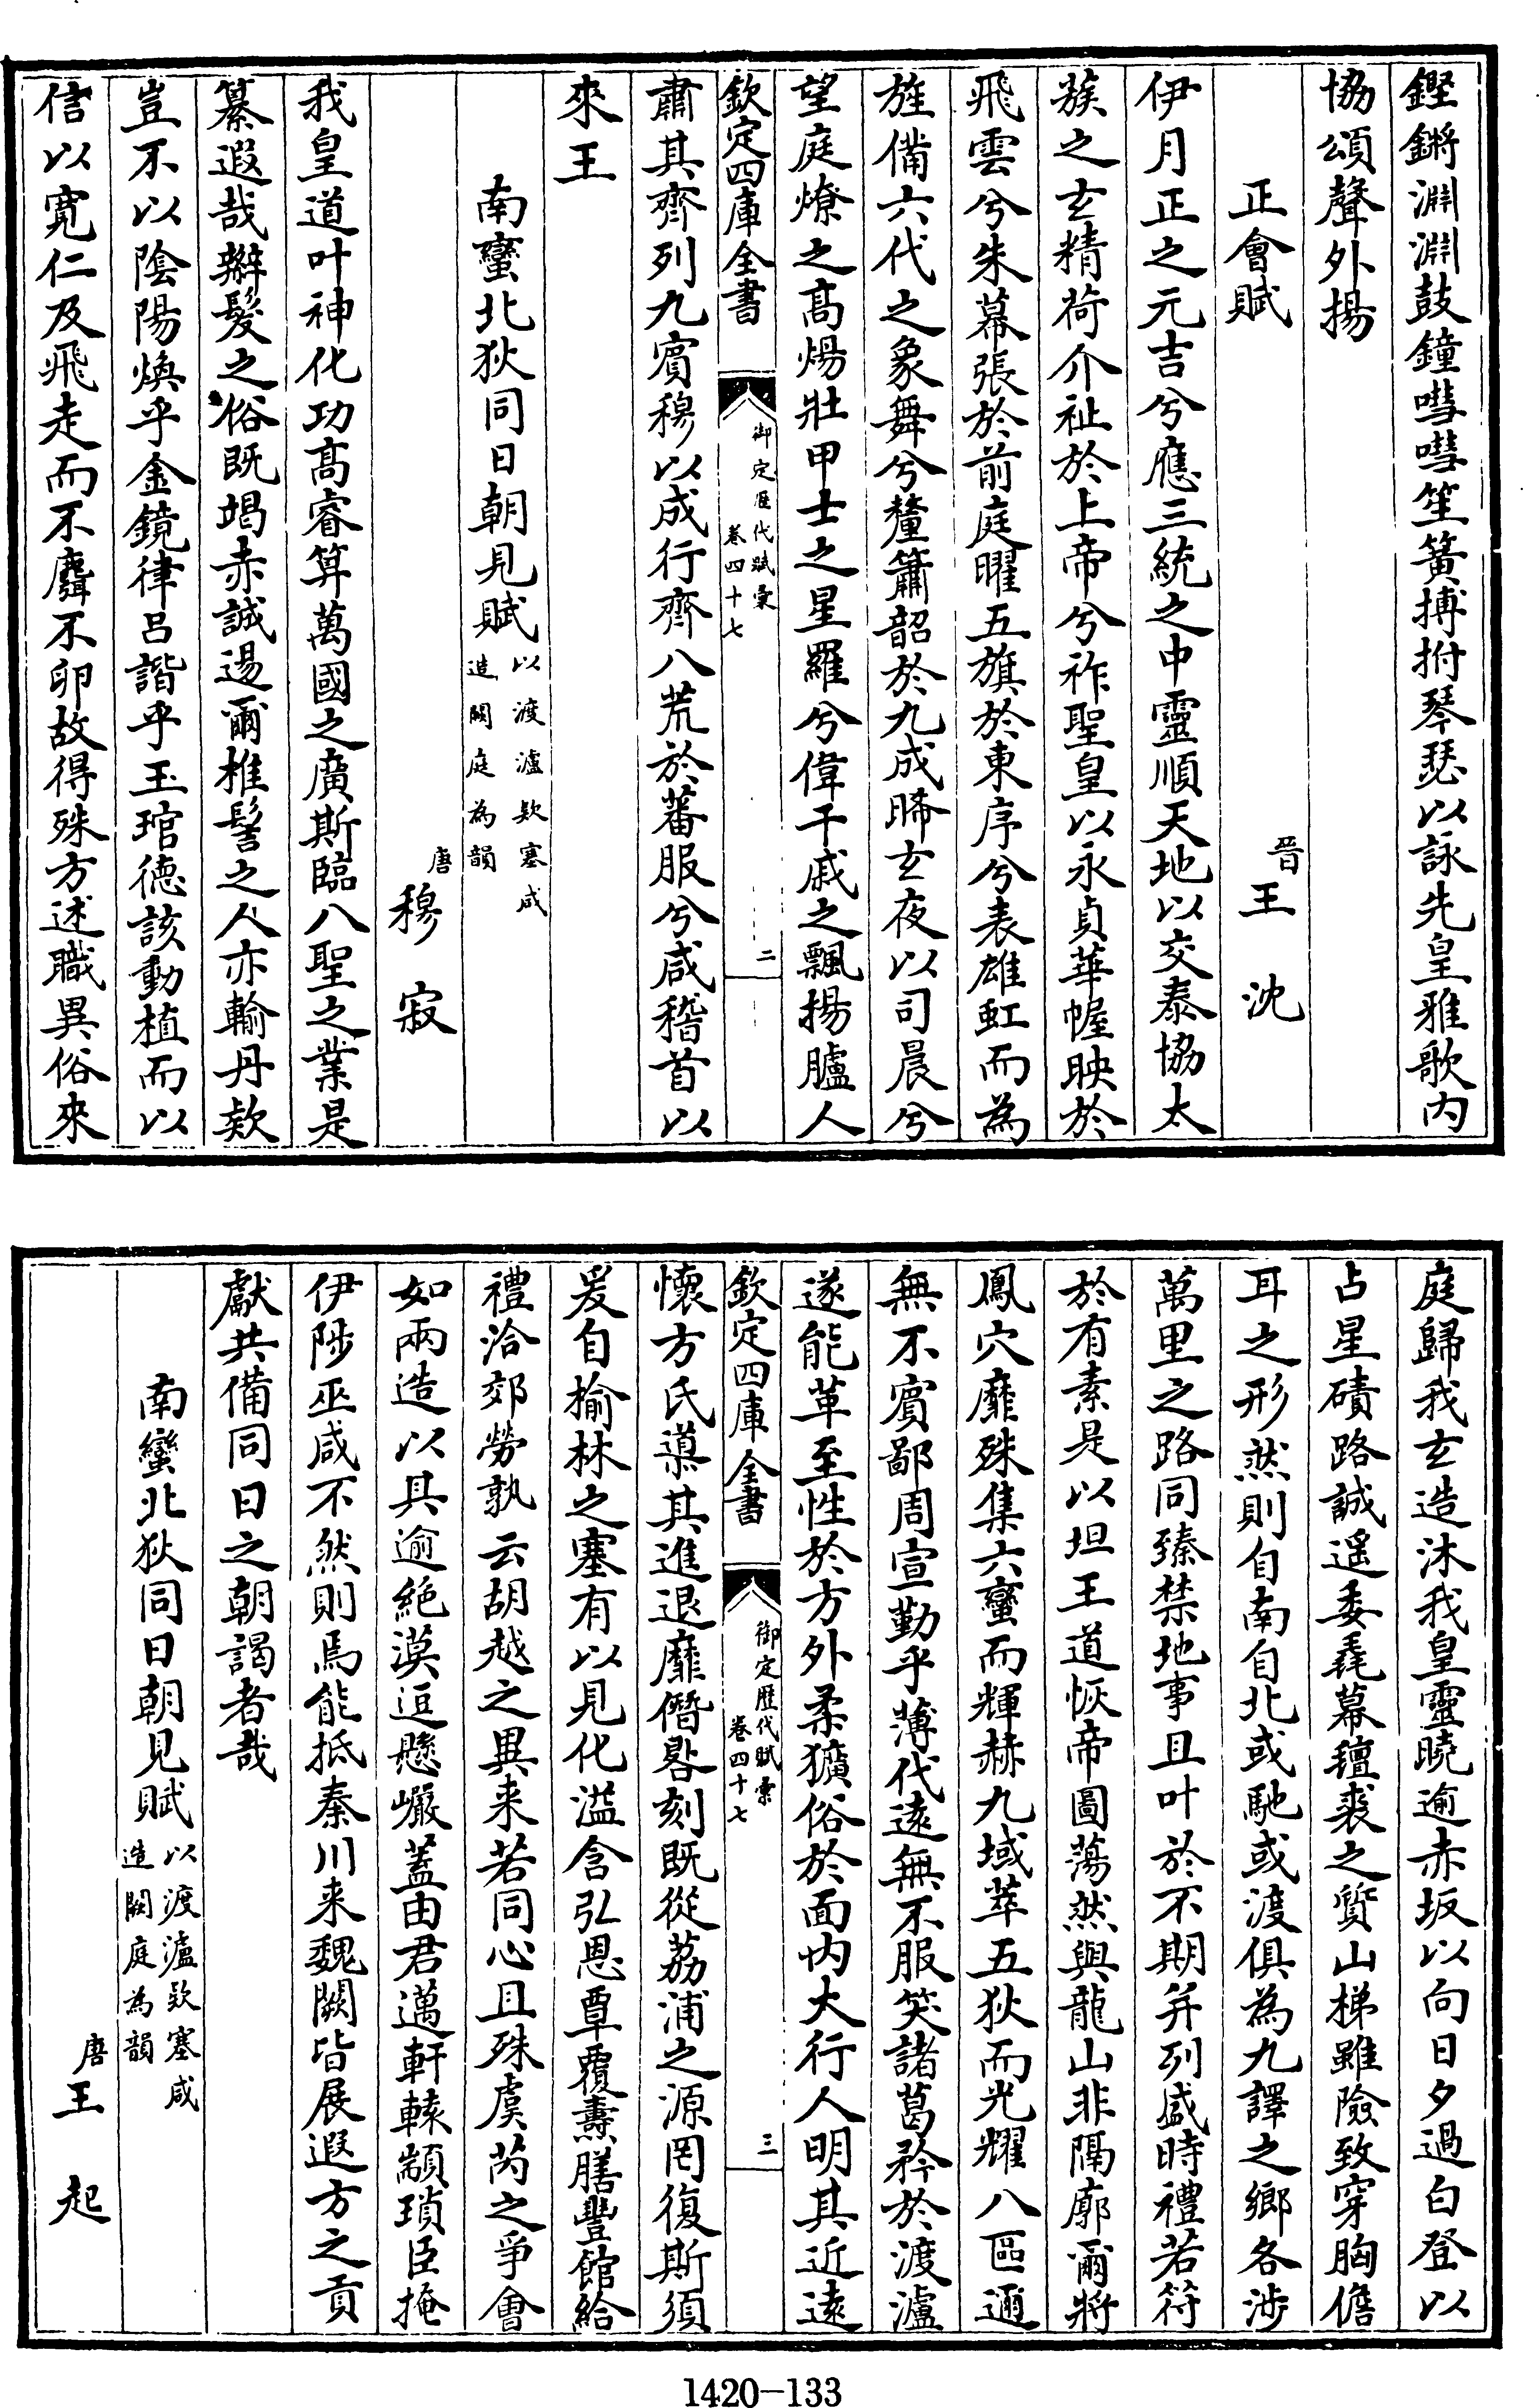 鏗鏘淵淵鼓鐘嘒嘒笙簧搏拊琴瑟以詠先皇雅歌内
協頌聲外揚
正會賦
晉王沈
伊月正之元吉兮應三統之中靈順天地以交泰協太
蔟之玄精荷介祉於上帝兮祚聖皇以永貞華幄映於
飛雲兮朱幕張於前庭曜五旗於東序兮表雄虹而為
旌備六代之象舞兮釐簫韶於九成晞玄夜以司晨兮
望庭燎之髙煬壯甲士之星羅兮偉干戚之飄揚臚人
欽定四庫全書
御定歴代賦彚
卷四十七
二
肅其齊列九賓穆以成行齊八荒於蕃服兮咸稽首以
來王
南蠻北狄同日朝見賦以渡瀘欵塞咸
造闕庭為韻
唐穆寂
我皇道叶神化功髙睿算萬國之廣斯臨八聖之業是
纂遐哉辮髮之俗既竭赤誠逷爾椎髻之人亦輸丹欵
豈不以隂陽煥乎金鏡律呂諧乎玉琯徳該動植而以
信以寛仁及飛走而不麛不卵故得殊方述職異俗來
庭歸我玄造沐我皇靈曉逾赤坂以向日夕過白登以
占星磧路誠遥委毳幕氊裘之質山梯雖險致穿胸儋
耳之形然則自南自北或馳或渡俱為九譯之鄉各渉
萬里之路同臻禁地事且叶於不期并列盛時禮若符
於有素是以坦王道恢帝圖蕩然與龍山非隔廓爾將
鳳穴靡殊集六蠻而輝赫九域萃五狄而光耀八區邇
無不賓鄙周宣勤乎薄伐逺無不服笑諸葛矜於渡瀘
遂能革至性於方外柔獷俗於面内大行人明其近逺
欽定四庫全書
御定歴代賦彚
卷四十七
三
懷方氏䆃其進退靡僭晷刻既從荔浦之源罔復斯須
爰自榆林之塞有以見化溢含弘恩覃覆燾膳豐館給
禮洽郊勞孰云胡越之異来若同心且殊虞芮之爭會
如兩造以具逾絶漠逗懸巖蓋由君邁軒轅顓瑣臣掩
伊陟巫咸不然則焉能抵秦川来魏闕皆展遐方之貢
獻共備同日之朝謁者哉
南蠻北狄同日朝見賦以渡瀘欵塞咸
造闕庭為韻
唐王起
1420-133